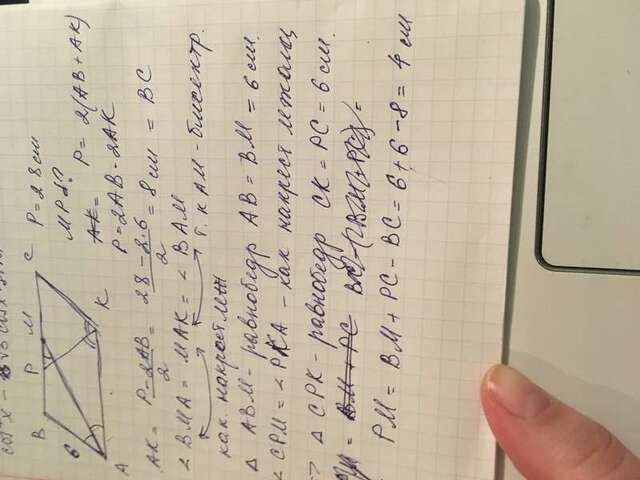 B P M C
6
A K
P = 28 см
MP - ?
P = 2(AB + AK)
P = 2AB - 2AK
AK = P - 2AB / 2 = 28 - 2·6 / 2 = 8 см = BC
∠ BMA = MAK = ∠ BAM
как накрест т.к AM - биссектр.
Δ ABM - равнобедр AB = BM = 6 см.
∠ CPK = ∠ PKA - как накрест лежащ
=> Δ CPK - равнобедр CK = PC = 6 см.
PM = BM + PC - BC = 6 + 6 - 8 = 4 см